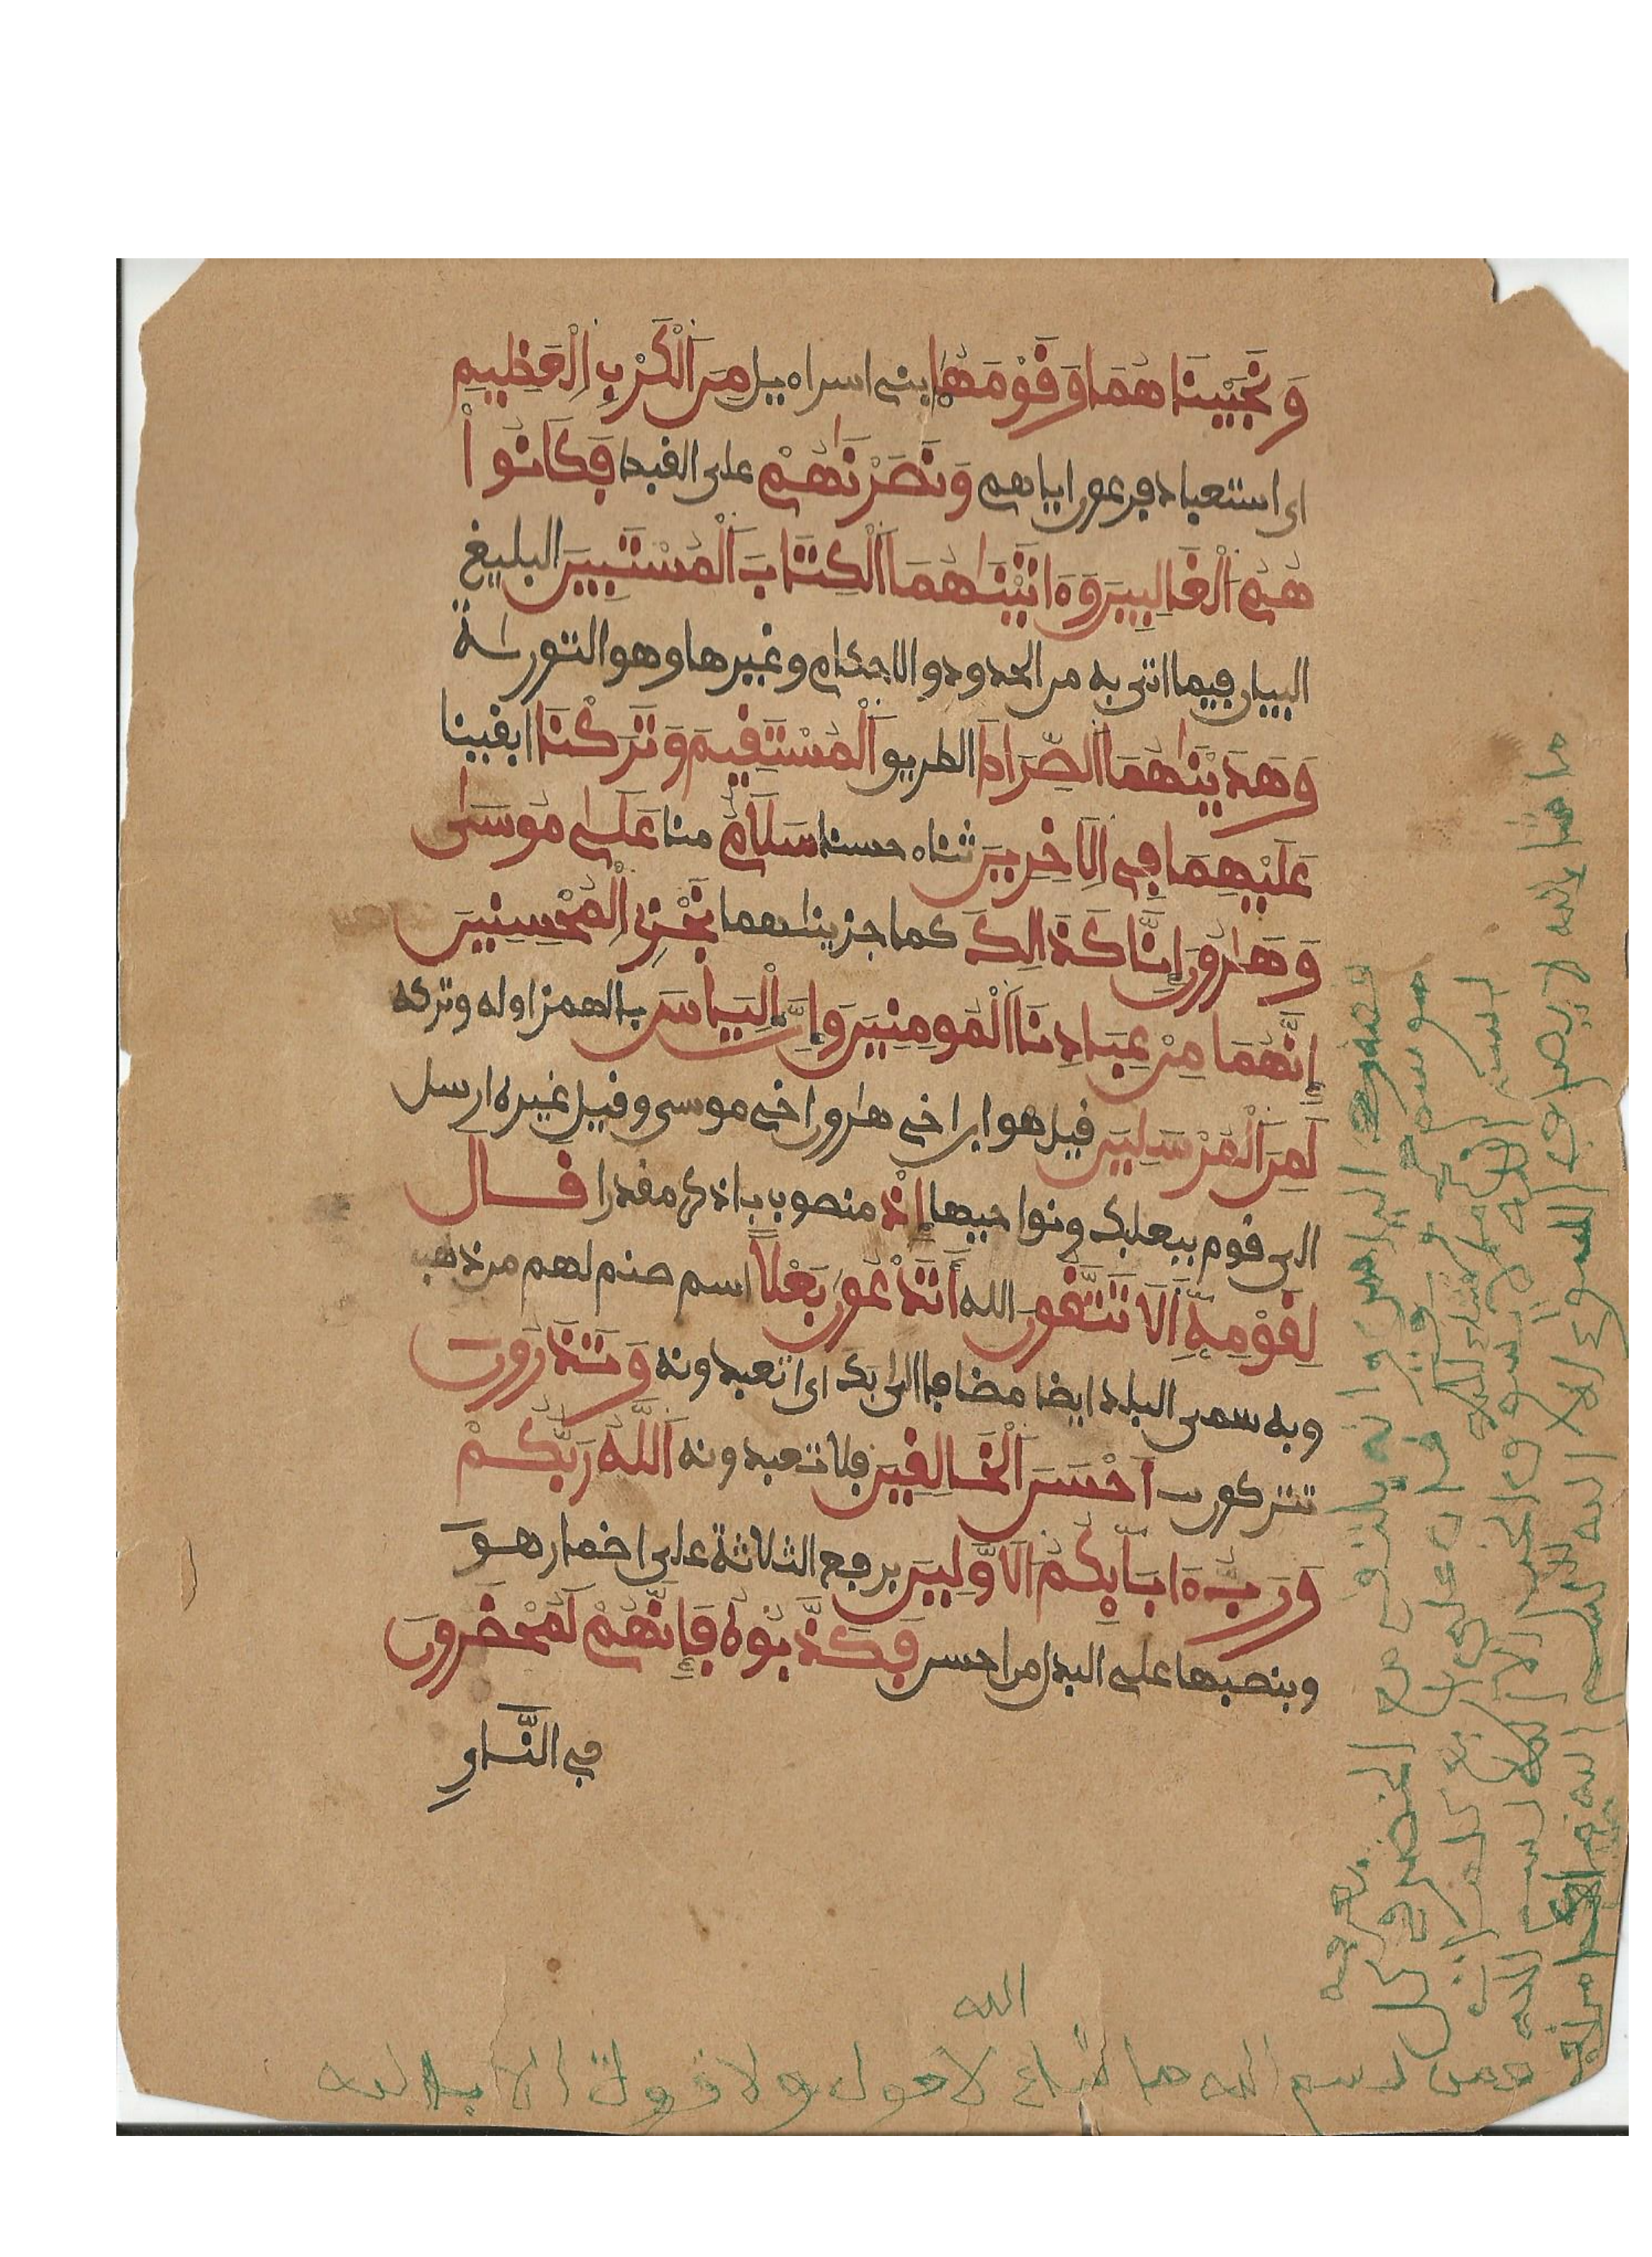 وَنَجَّيْنَاهُمَا وَقَوْمَهُمَا بني اسراءيل مِنَ اَلْكَرْبِ اِلْعَظِيمِ
اي استعباد فرعون اياهم وَنَصَرْنَاهُمْ على القبط فَكَانُواْ
هُمُ اَلْغَالِبِينَ وَءَاتَيْنَاهُمَا اَلْكِتَابَ اَلْمُسْتَبِينَ البليغ
البيان فيما اتى به من الحدود والاحكام وغيرها وهو التورىة
وَهَدَيْنَاهُمَا اَلصِّرَاطَ الطريق اَلْمُسْتَقِيمَ وَتَرَكْنَا ابقينا
عَلَيْهِمَا فِي اِلَاخِرِينَ ثناء حسنا سَلَامٌ منا عَلَىٰ مُوسَىٰ
وَهَارُونَ إِنَّا كَذَالِكَ كما جزيناهما نَجْزِي اِلْمُحْسِنِينَ
إِنَّهُمَا مِنْ عِبَادِنَا اَلْمُومِنِينَ وَإِنَّ إِلْيَاسَ بالهمز اوله وتركه
لَمِنَ اَلْمُرْسَلِينَ قيل هو ابن اخي هارون اخي موسى وقيل غيره ارسل
الى قوم ببعلبك ونواحيها إِذْ منصوب باذكر مقدرا قَالَ
لِقَوْمِهِ أَلَا تَتَّقُونَ الله أَتَدْعُونَ بَعْلاً اسم صنم لهم من ذهب
وبه سمي البلد ايضا مضافا الى بك اي اتعبدونه وَتَذَرُونَ
تتركون أَحْسَنَ اَلْخَالِقِينَ فلا تعبدونه اَللَّهُ رَبُّكُمْ
وَرَبُّ ءَابَآئِكُمُ اَلَاوَّلِينَ برفع الثلاثة على اضمار هو
وبنصبها على البدل من احسن فَكَذَّبُوهُ فَإِنَّهُمْ لَمُحْضَرُونَ
في النَّارِ
ما شا الله لا يصرف السوء الا الله
بسم الله ما شاء الله لا يسوق الخير الا الله
الله
بسم الله ما شاء لا حول ولا قوة الا بالله